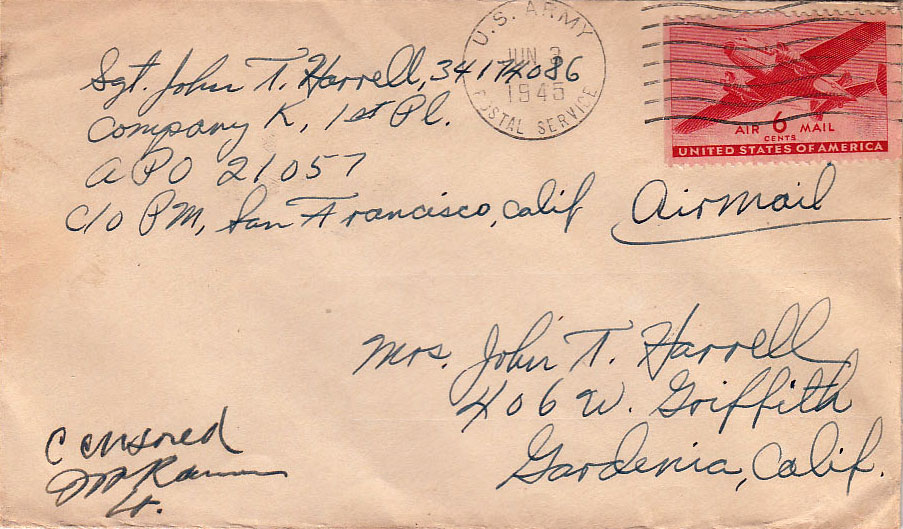 Sgt. John T. Harrell, 34174086
Company K, 1st Pl.
APO 21057
c/o PM, San Francisco, Calif
U.S. ARMY
JUN 3
1945
POSTAL SERVICE
AIR 6 MAIL
CENTS
UNITED STATES OF AMERICA
Airmail
Mrs. John T. Harrell
406 W. Griffith
Gardenia, Calif.
Censored
Lt.